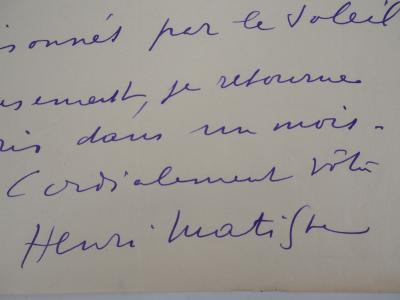 isonnés par le Soleil
usement, je retourne
ris dans un mois.
Cordialement vôtre
Henri Matisse